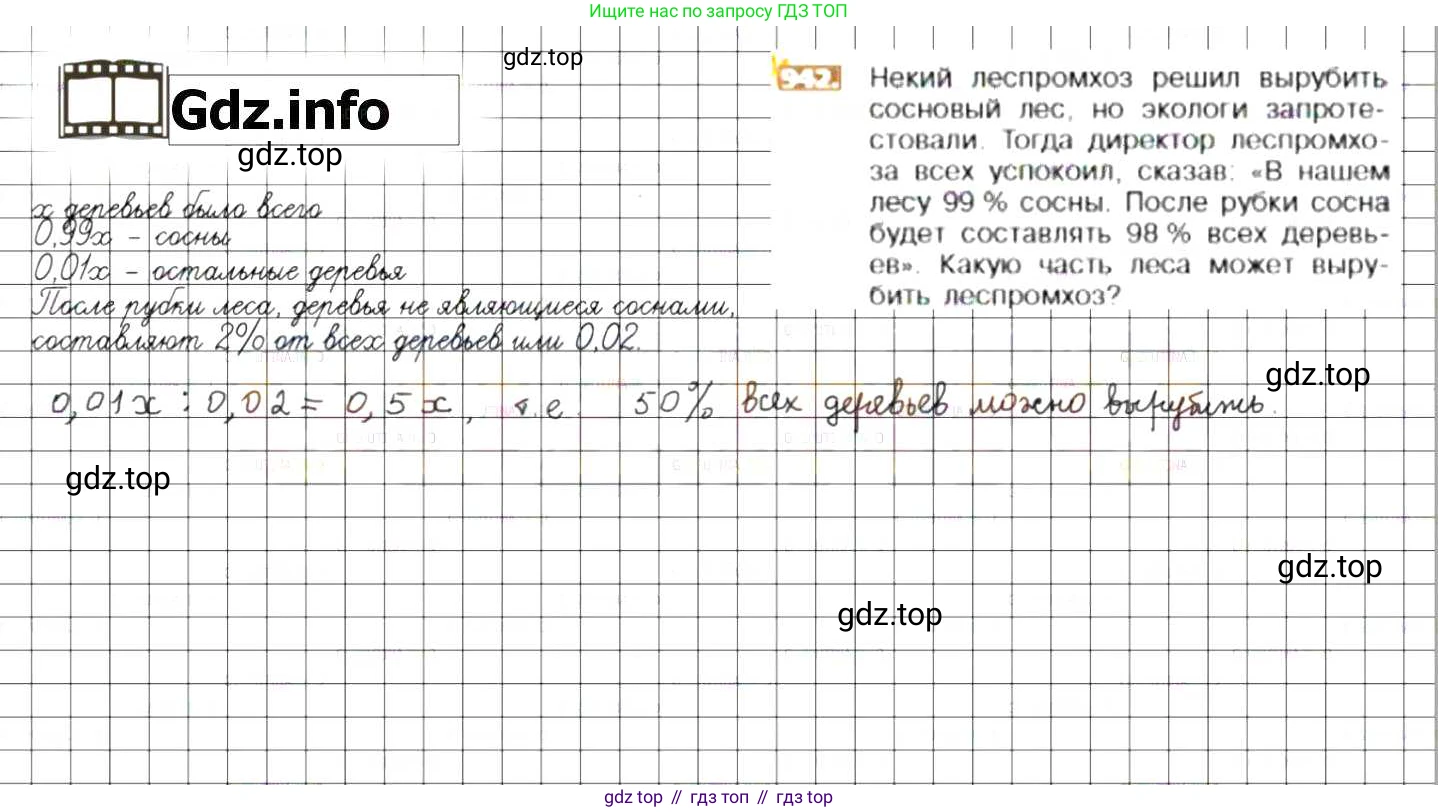 Ищите нас по запросу ГДЗ ТОП
gdz.top
Gdz.info
gdz.top
942. Некий леспромхоз решил вырубить
сосновый лес, но экологи запроте-
стовали. Тогда директор леспромхо-
за всех успокоил, сказав: «В нашем
лесу 99 % сосны. После рубки сосна
будет составлять 98 % всех деревь-
ев». Какую часть леса может выру-
бить леспромхоз?
x деревьев было всего
0,99x – сосны
0,01x – остальные деревья
После рубки леса, деревья не являющиеся соснами,
составляют 2% от всех деревьев или 0,02.
gdz.top
0,01x : 0,02 = 0,5x, т.е. 50% всех деревьев можно вырубить.
gdz.top
gdz.top
gdz.top
gdz top // гдз топ // гдз top